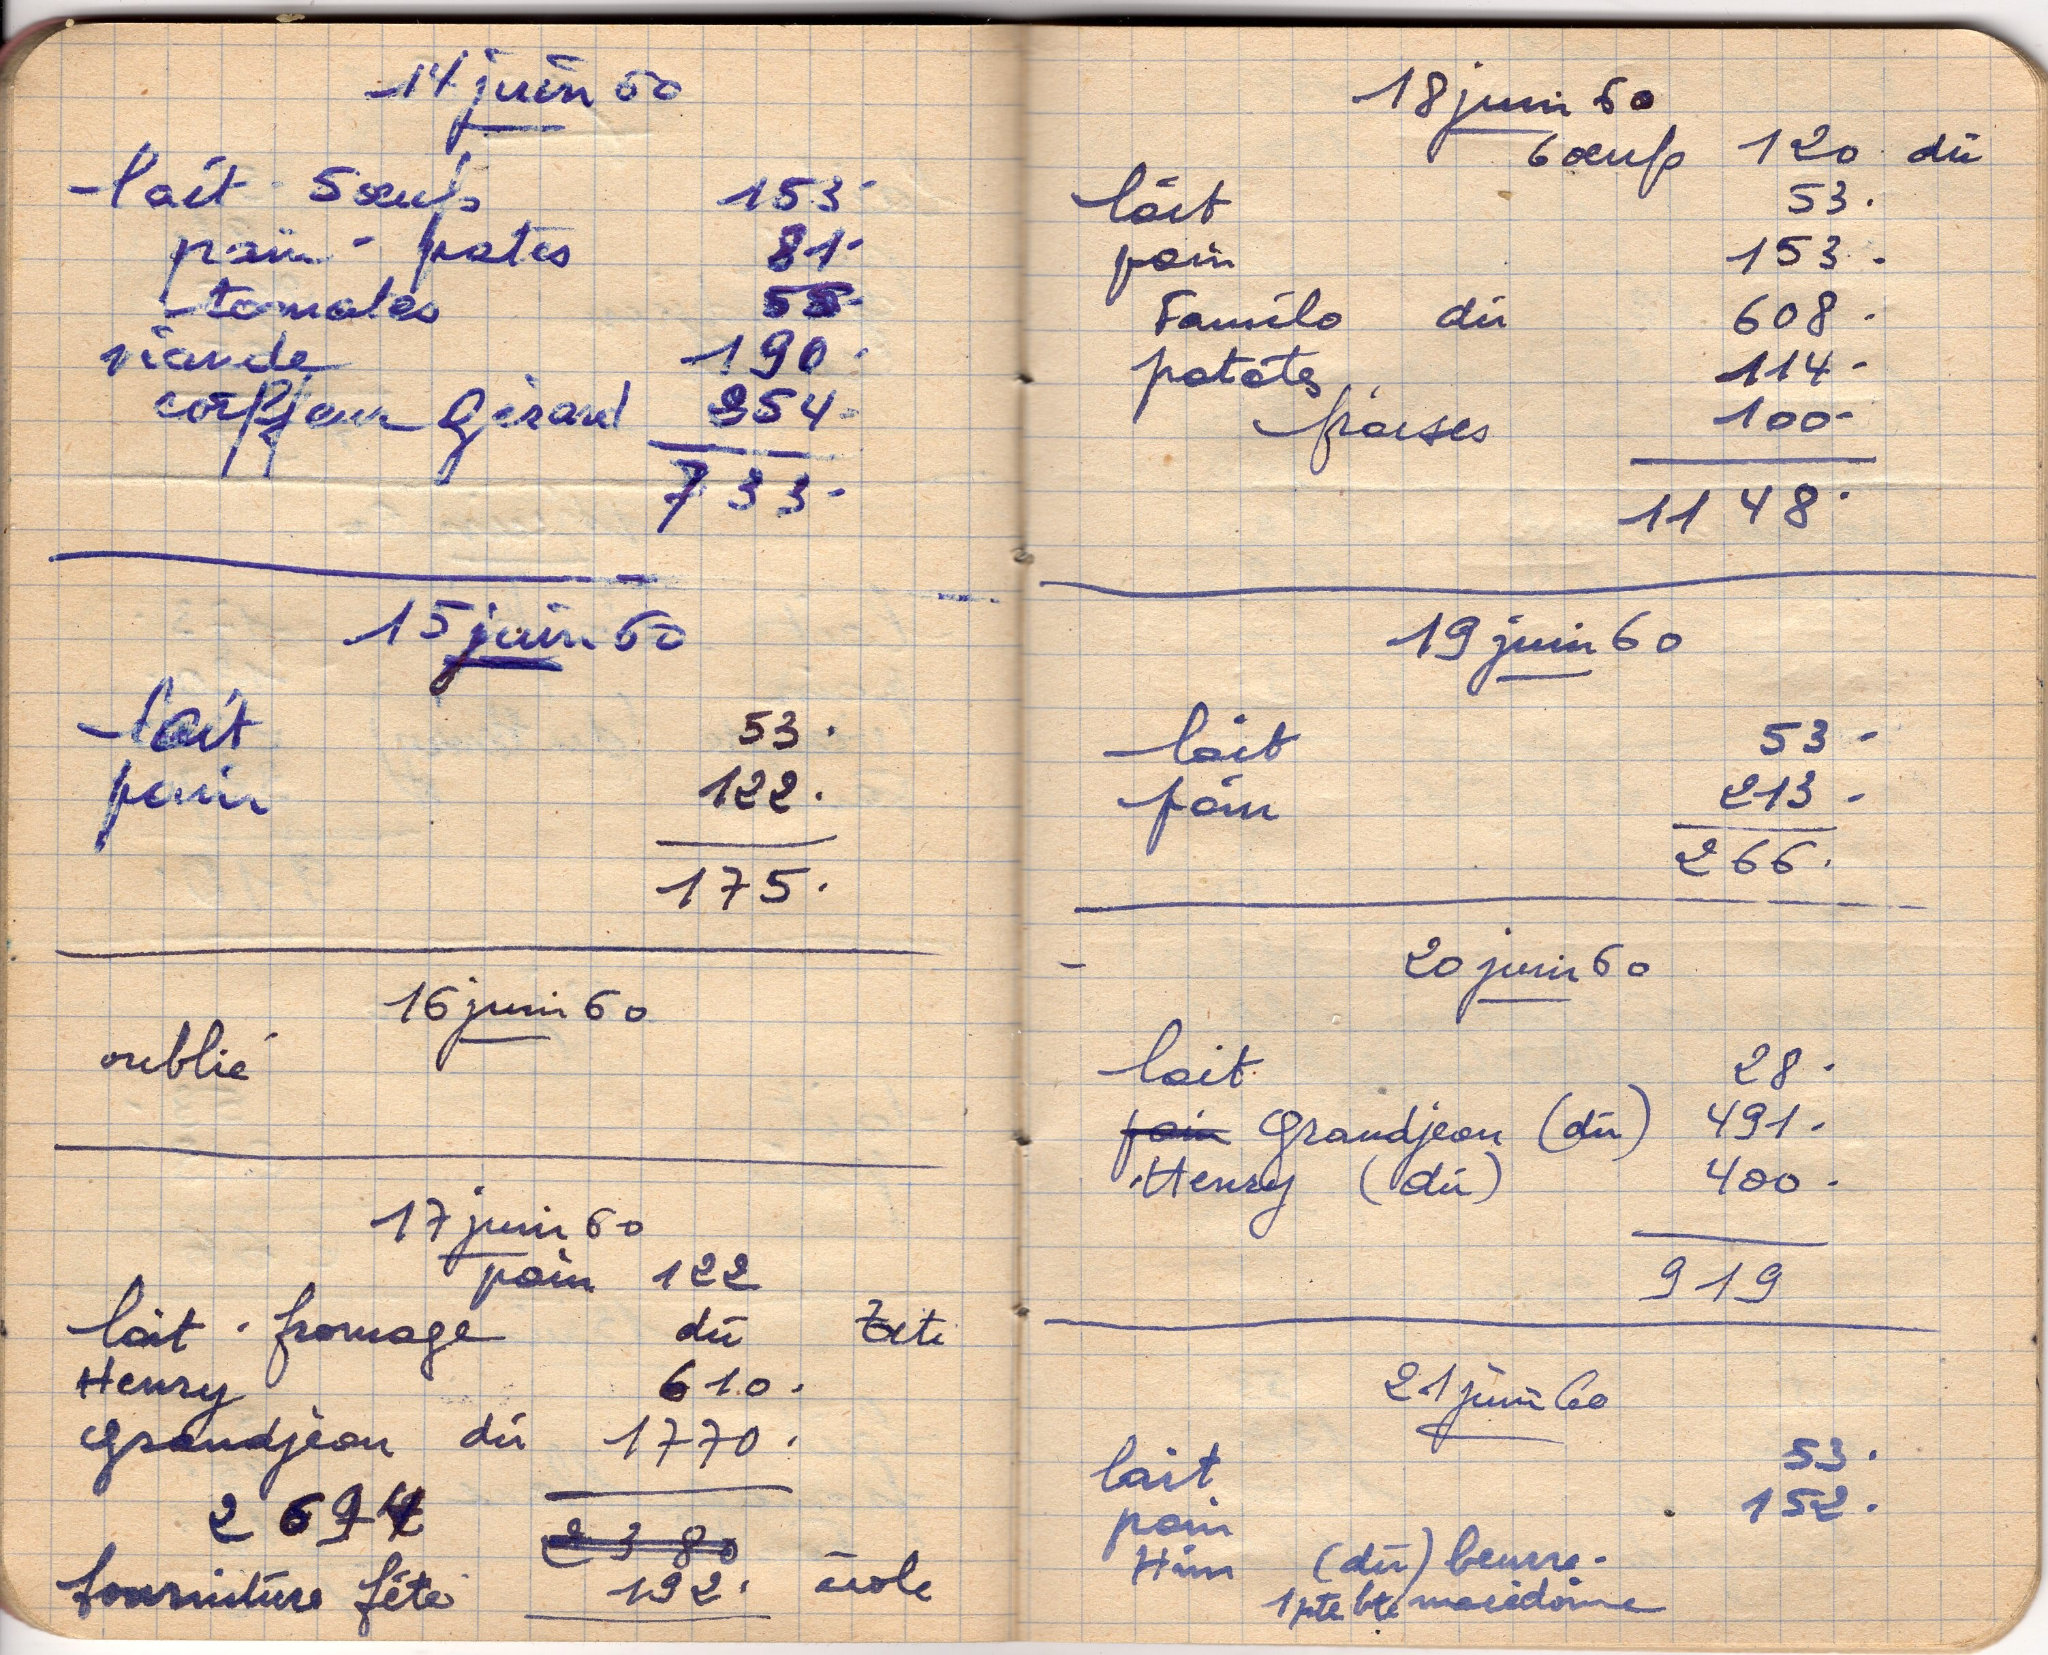 14 juin 60
lait 5 œufs 153-
pain - pates 81-
tomates 55-
viande 190-
Gérard 254-
733-
15 juin 60
lait 53.
pain 122.
175.
16 juin 60
oublié
17 juin 60
pain 122
lait - fromage dû
Henry 610.
Grandjean dû 1770.
2694 2380
fourniture fête 192. école
18 juin 60
6 œufs 120 dû
lait 53.
pain 153.
Familo dû 608.
patates 114-
fraises 100-
1148.
19 juin 60
lait 53-
pain 213-
266.
20 juin 60
lait 28.
pain Grandjean (dû) 491.
Henry (dû) 400.
919
21 juin 60
lait 53.
pain 152.
(dû) beurre.
1 pte bte macédoine